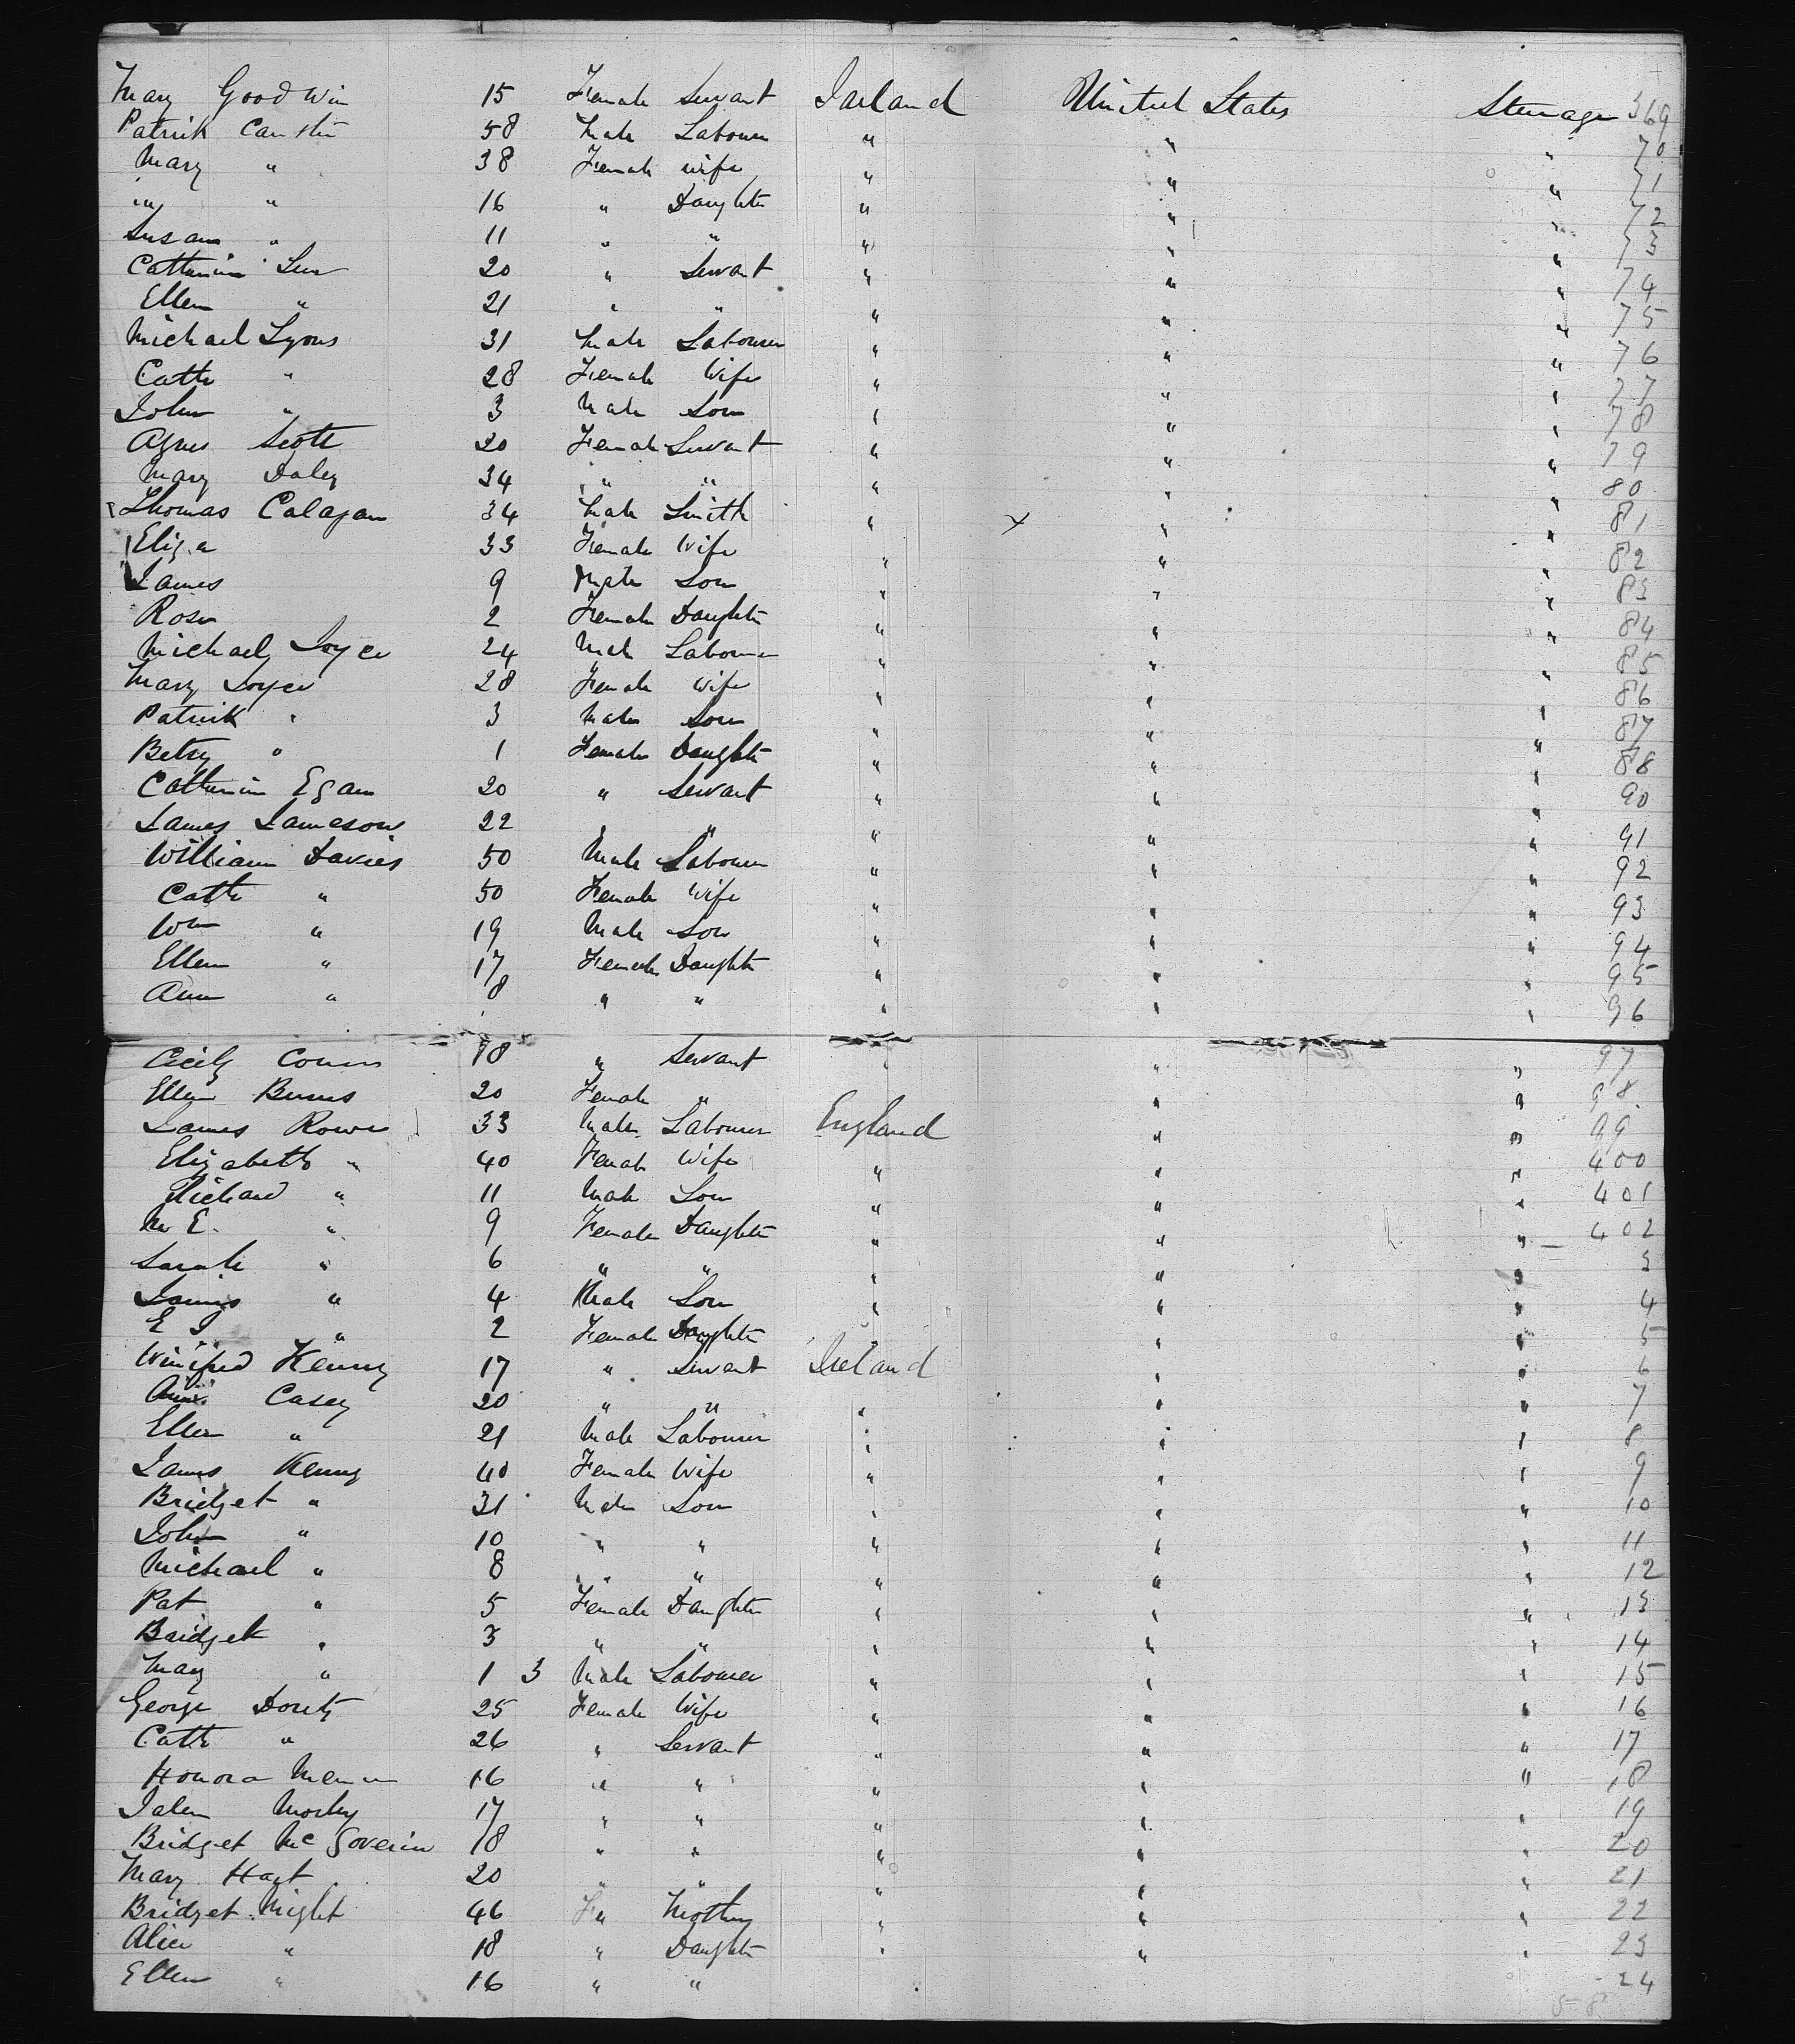 Mary Goodwin 15 Female Servant Ireland United States Steerage 369
Patrick 58 Male Labourer " " " 70
Mary " 38 Female wife " " " 71
" " 16 " Daughter " " " 72
Susan " 11 " " " " " 73
Catherine 20 " Servant " " " 74
Ellen " 21 " " " " " 75
Michael Lyons 31 Male Labourer " " " 76
Cath " 28 Female Wife " " " 77
John " 3 Male Son " " " 78
Agnes Scott 20 Female Servant " " " 79
Mary Daley 34 " " " " " 80
Thomas Calagan 34 Male Smith " x " " 81
Eliza 33 Female Wife " " " 82
James 9 Male Son " " " 83
Rose 2 Female Daughter " " " 84
Michael Joyce 24 Male Labourer " " " 85
Mary Joyce 28 Female Wife " " " 86
Patrick " 3 Male Son " " " 87
Betsy " 1 Female Daughter " " " 88
Catherine Egan 20 " Servant " " " 90
James Jameson 22 " " " " " 91
William Davies 50 Male Labourer " " " 92
Cath " 50 Female Wife " " " 93
Wm " 19 Male Son " " " 94
Ellen " 17 Female Daughter " " " 95
Ann " 8 " " " " " 96
Cecily 18 " Servant " " " 97
Ellen Burns 20 Female " " " 98
James Rowe 33 Male Labourer England " " 99
Elizabeth " 40 Female Wife " " " 400
Richard " 11 Male Son " " " 401
M E. " 9 Female Daughter " " " 402
Sarah " 6 " " " " " 3
James " 4 Male Son " " " 4
E J " 2 Female Daughter " " " 5
Winifred Kenny 17 " Servant Ireland " " 6
Ann Casey 20 " " " " " 7
Ellen " 21 Male Labourer " " " 8
James Kenny 40 Female Wife " " " 9
Bridget " 31 Male Son " " " 10
John " 10 " " " " " 11
Michael " 8 " " " " " 12
Pat " 5 Female Daughter " " " 13
Bridget " 3 " " " " " 14
Mary " 1 3 Male Labourer " " " 15
George 25 Female Wife " " " 16
Cath " 26 " Servant " " " 17
Honora 16 " " " " " 18
17 " " " " " 19
Bridget McGoverin 18 " " " " " 20
Mary Hart 20 " " " " " 21
Bridget Might 46 Fe Mother " " " 22
Alice " 18 " Daughter " " " 23
Ellen " 16 " " 24
58